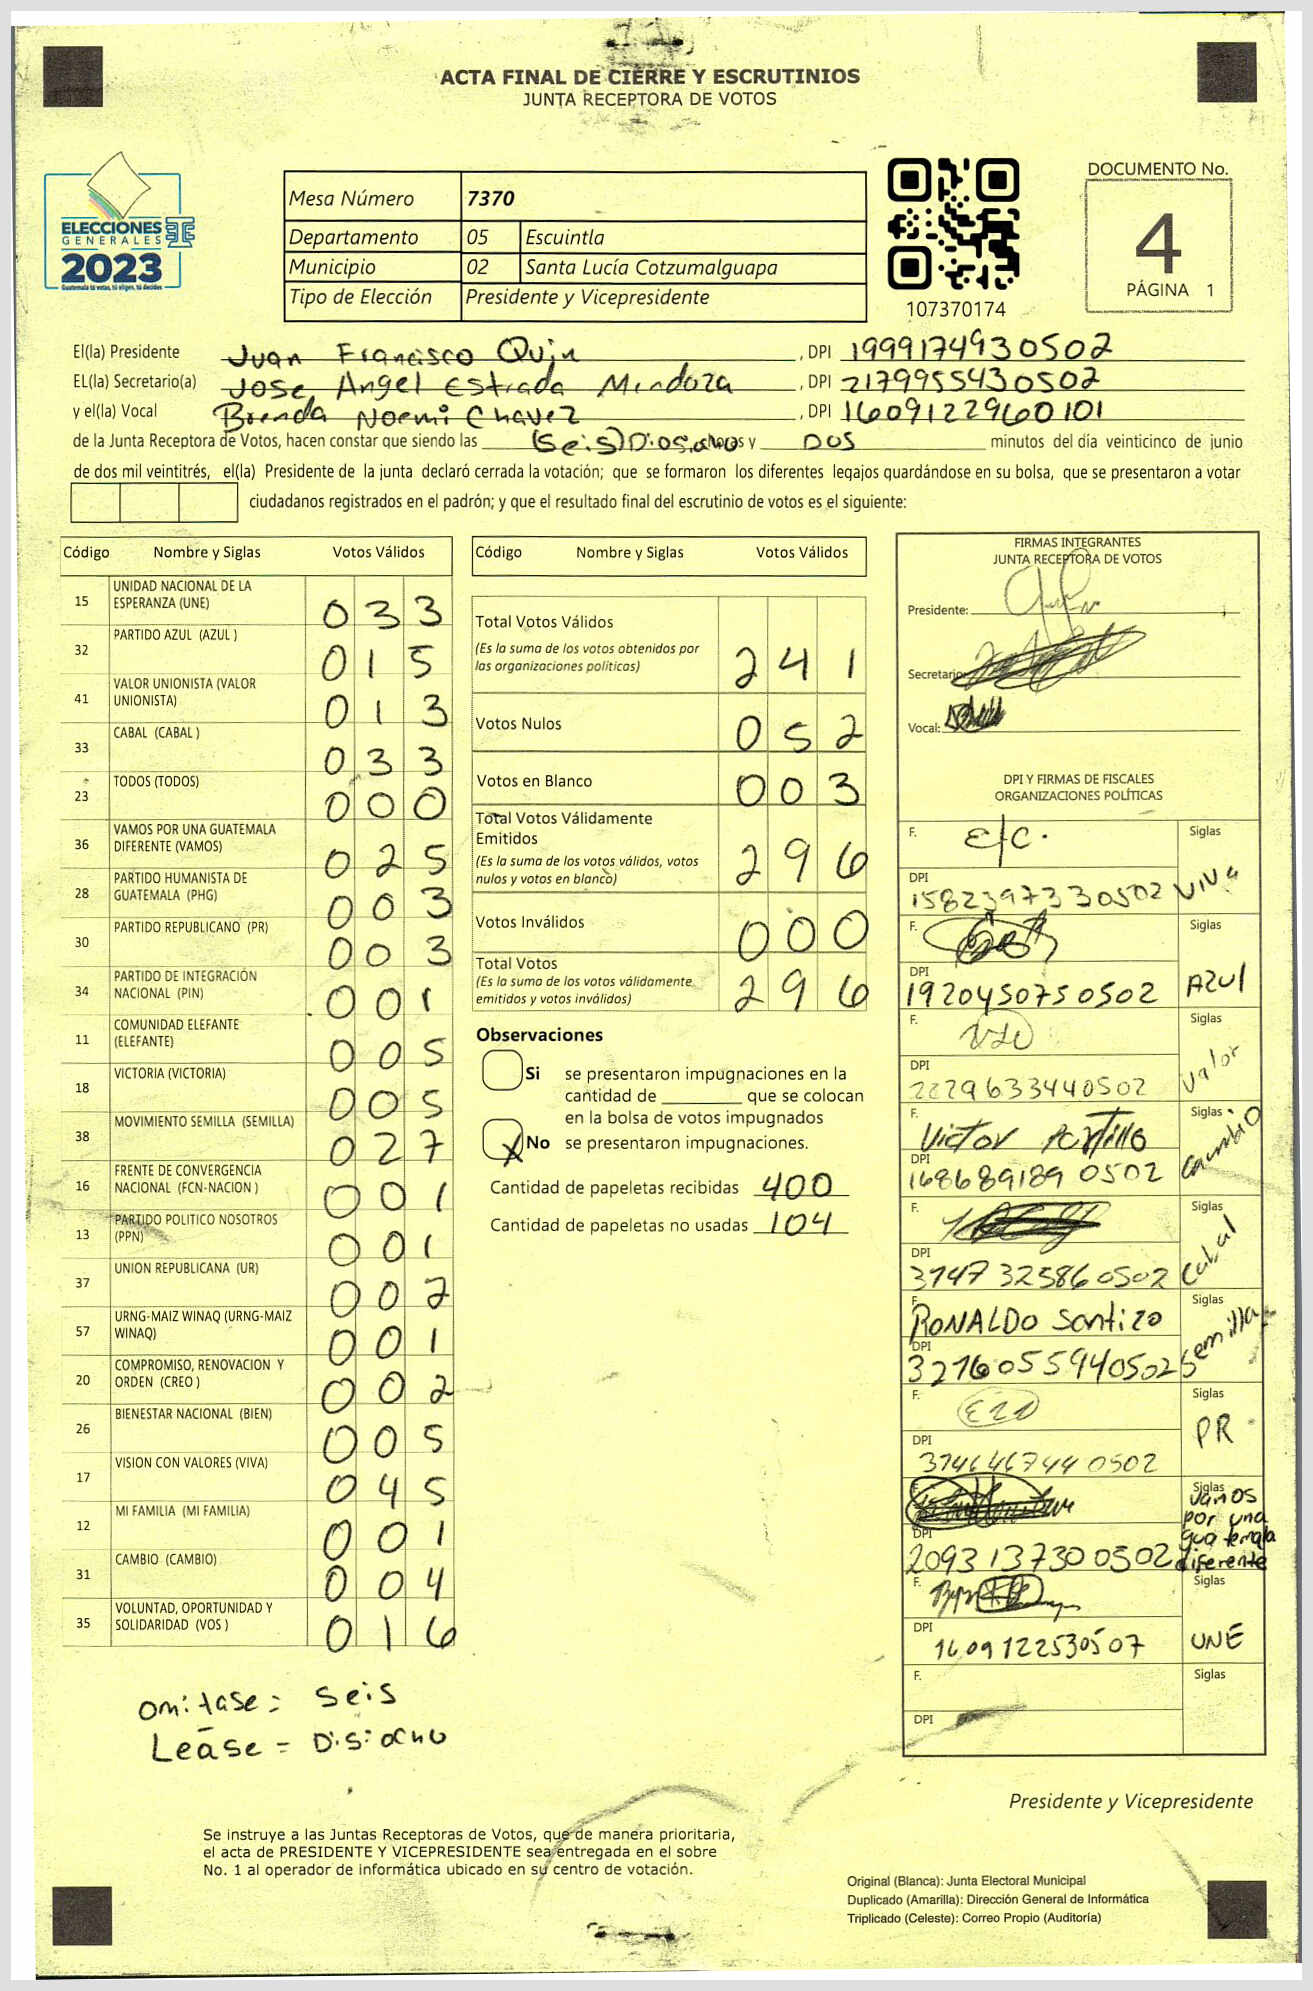 ACTA FINAL DE CIERRE Y ESCRUTINIOS
JUNTA RECEPTORA DE VOTOS
ELECCIONES
GENERALES
2023
Guatemala tú votas, tú eliges, tú decides
Mesa Número 7370
Departamento 05 Escuintla
Municipio 02 Santa Lucía Cotzumalguapa
Tipo de Elección Presidente y Vicepresidente
107370174
DOCUMENTO No.
4
PÁGINA 1
El(la) Presidente Juan Francisco Quin , DPI 1999174930502
EL(la) Secretario(a) Jose Angel Estrada Mendoza , DPI 2179955430502
y el(la) Vocal Brenda Noemi Chavez , DPI 1609122960101
de la Junta Receptora de Votos, hacen constar que siendo las (seis) Diosiocho horas y DOS minutos del día veinticinco de junio
de dos mil veintitrés, el(la) Presidente de la junta declaró cerrada la votación; que se formaron los diferentes legajos quardándose en su bolsa, que se presentaron a votar
ciudadanos registrados en el padrón; y que el resultado final del escrutinio de votos es el siguiente:
Código Nombre y Siglas Votos Válidos
15 UNIDAD NACIONAL DE LA ESPERANZA (UNE) 033
32 PARTIDO AZUL (AZUL ) 015
41 VALOR UNIONISTA (VALOR UNIONISTA) 013
33 CABAL (CABAL ) 033
23 TODOS (TODOS) 000
36 VAMOS POR UNA GUATEMALA DIFERENTE (VAMOS) 025
28 PARTIDO HUMANISTA DE GUATEMALA (PHG) 003
30 PARTIDO REPUBLICANO (PR) 003
34 PARTIDO DE INTEGRACIÓN NACIONAL (PIN) 001
11 COMUNIDAD ELEFANTE (ELEFANTE) 005
18 VICTORIA (VICTORIA) 005
38 MOVIMIENTO SEMILLA (SEMILLA) 027
16 FRENTE DE CONVERGENCIA NACIONAL (FCN-NACION ) 001
13 PARTIDO POLITICO NOSOTROS (PPN) 001
37 UNION REPUBLICANA (UR) 002
57 URNG-MAIZ WINAQ (URNG-MAIZ WINAQ) 001
20 COMPROMISO, RENOVACION Y ORDEN (CREO ) 002
26 BIENESTAR NACIONAL (BIEN) 005
17 VISION CON VALORES (VIVA) 045
12 MI FAMILIA (MI FAMILIA) 001
31 CAMBIO (CAMBIO) 004
35 VOLUNTAD, OPORTUNIDAD Y SOLIDARIDAD (VOS ) 016
Omitase = Seis
Lease = Disiocho
Código Nombre y Siglas Votos Válidos
Total Votos Válidos 241
(Es la suma de los votos obtenidos por
las organizaciones políticas)
Votos Nulos 052
Votos en Blanco 003
Total Votos Válidamente
Emitidos 296
(Es la suma de los votos válidos, votos
nulos y votos en blanco)
Votos Inválidos 000
Total Votos 296
(Es la suma de los votos válidamente
emitidos y votos inválidos)
Observaciones
Si se presentaron impugnaciones en la
cantidad de ________ que se colocan
en la bolsa de votos impugnados
X No se presentaron impugnaciones.
Cantidad de papeletas recibidas 400
Cantidad de papeletas no usadas 104
FIRMAS INTEGRANTES
JUNTA RECEPTORA DE VOTOS
Presidente:
Secretario:
Vocal:
DPI Y FIRMAS DE FISCALES
ORGANIZACIONES POLÍTICAS
F. E/C. Siglas
DPI 1582397330502 VIVA
F. Siglas
DPI 1920450750502 AZUl
F. Siglas
DPI 2229633440502 Valor
F. Victor Portillo Siglas
DPI 1686891890502 Cambio
F. Siglas
DPI 3147325860502 Cabal
F. RONALDO Santizo Siglas
DPI 3276055940502 Semilla
F. Siglas
DPI 3746467440502 PR
F. Siglas
DPI 2093137300502 Vamos por una guatemala diferente
F. Siglas
DPI 1609122530507 UNE
F. Siglas
DPI
Presidente y Vicepresidente
Se instruye a las Juntas Receptoras de Votos, que de manera prioritaria,
el acta de PRESIDENTE Y VICEPRESIDENTE sea entregada en el sobre
No. 1 al operador de informática ubicado en su centro de votación.
Original (Blanca): Junta Electoral Municipal
Duplicado (Amarilla): Dirección General de Informática
Triplicado (Celeste): Correo Propio (Auditoría)